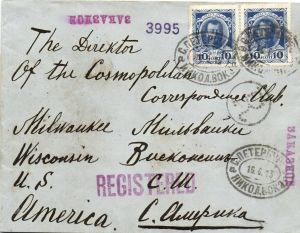 ЗАКАЗНОЕ
3995
10 10
The Direktor
Of the Cosmopolitan
Correspondence Club.
Milwaukee Мильваюки
Wisconsin Висконсин
U. S. С. Ш.
America. С. Америка
REGISTERED
ЗАКАЗНОЕ
С.ПЕТЕРБУРГ
НИКОЛ.ВОКЗ.